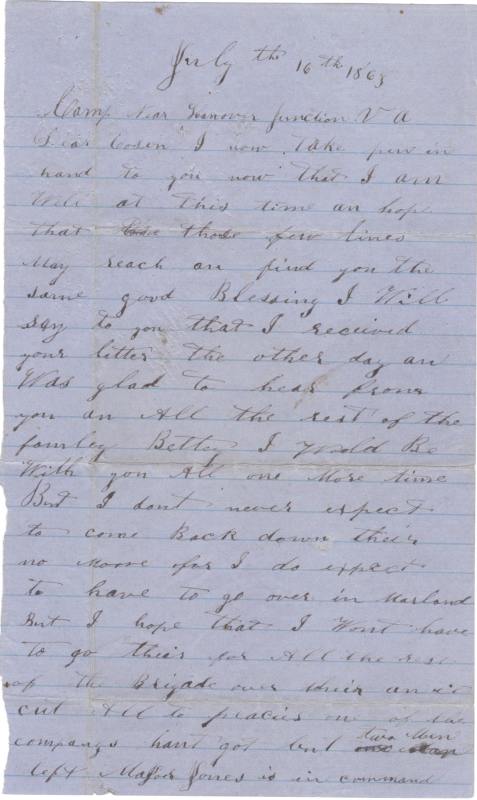 July the 16th 1863
Camp Near Hanover Junction V A
Dear Cosen I now take pen in
hand to you now that I am
Well at this time an hope
that those few lines
May reach an find you the
same good Blessing I Will
say to you that I received
your litter the other day an
Was glad to hear from
you an All the rest of the
famley Bettey I Wold Be
With you All one More time
But I dont never expect
to come Back down their
no Moore for I do expect
to have to go over in Marland
But I hope that I Wont have
to go their for All the rest
of the Brigade over their an is
cut All to peacies one of the
companys hant got but two Men
left Major Jones is in command